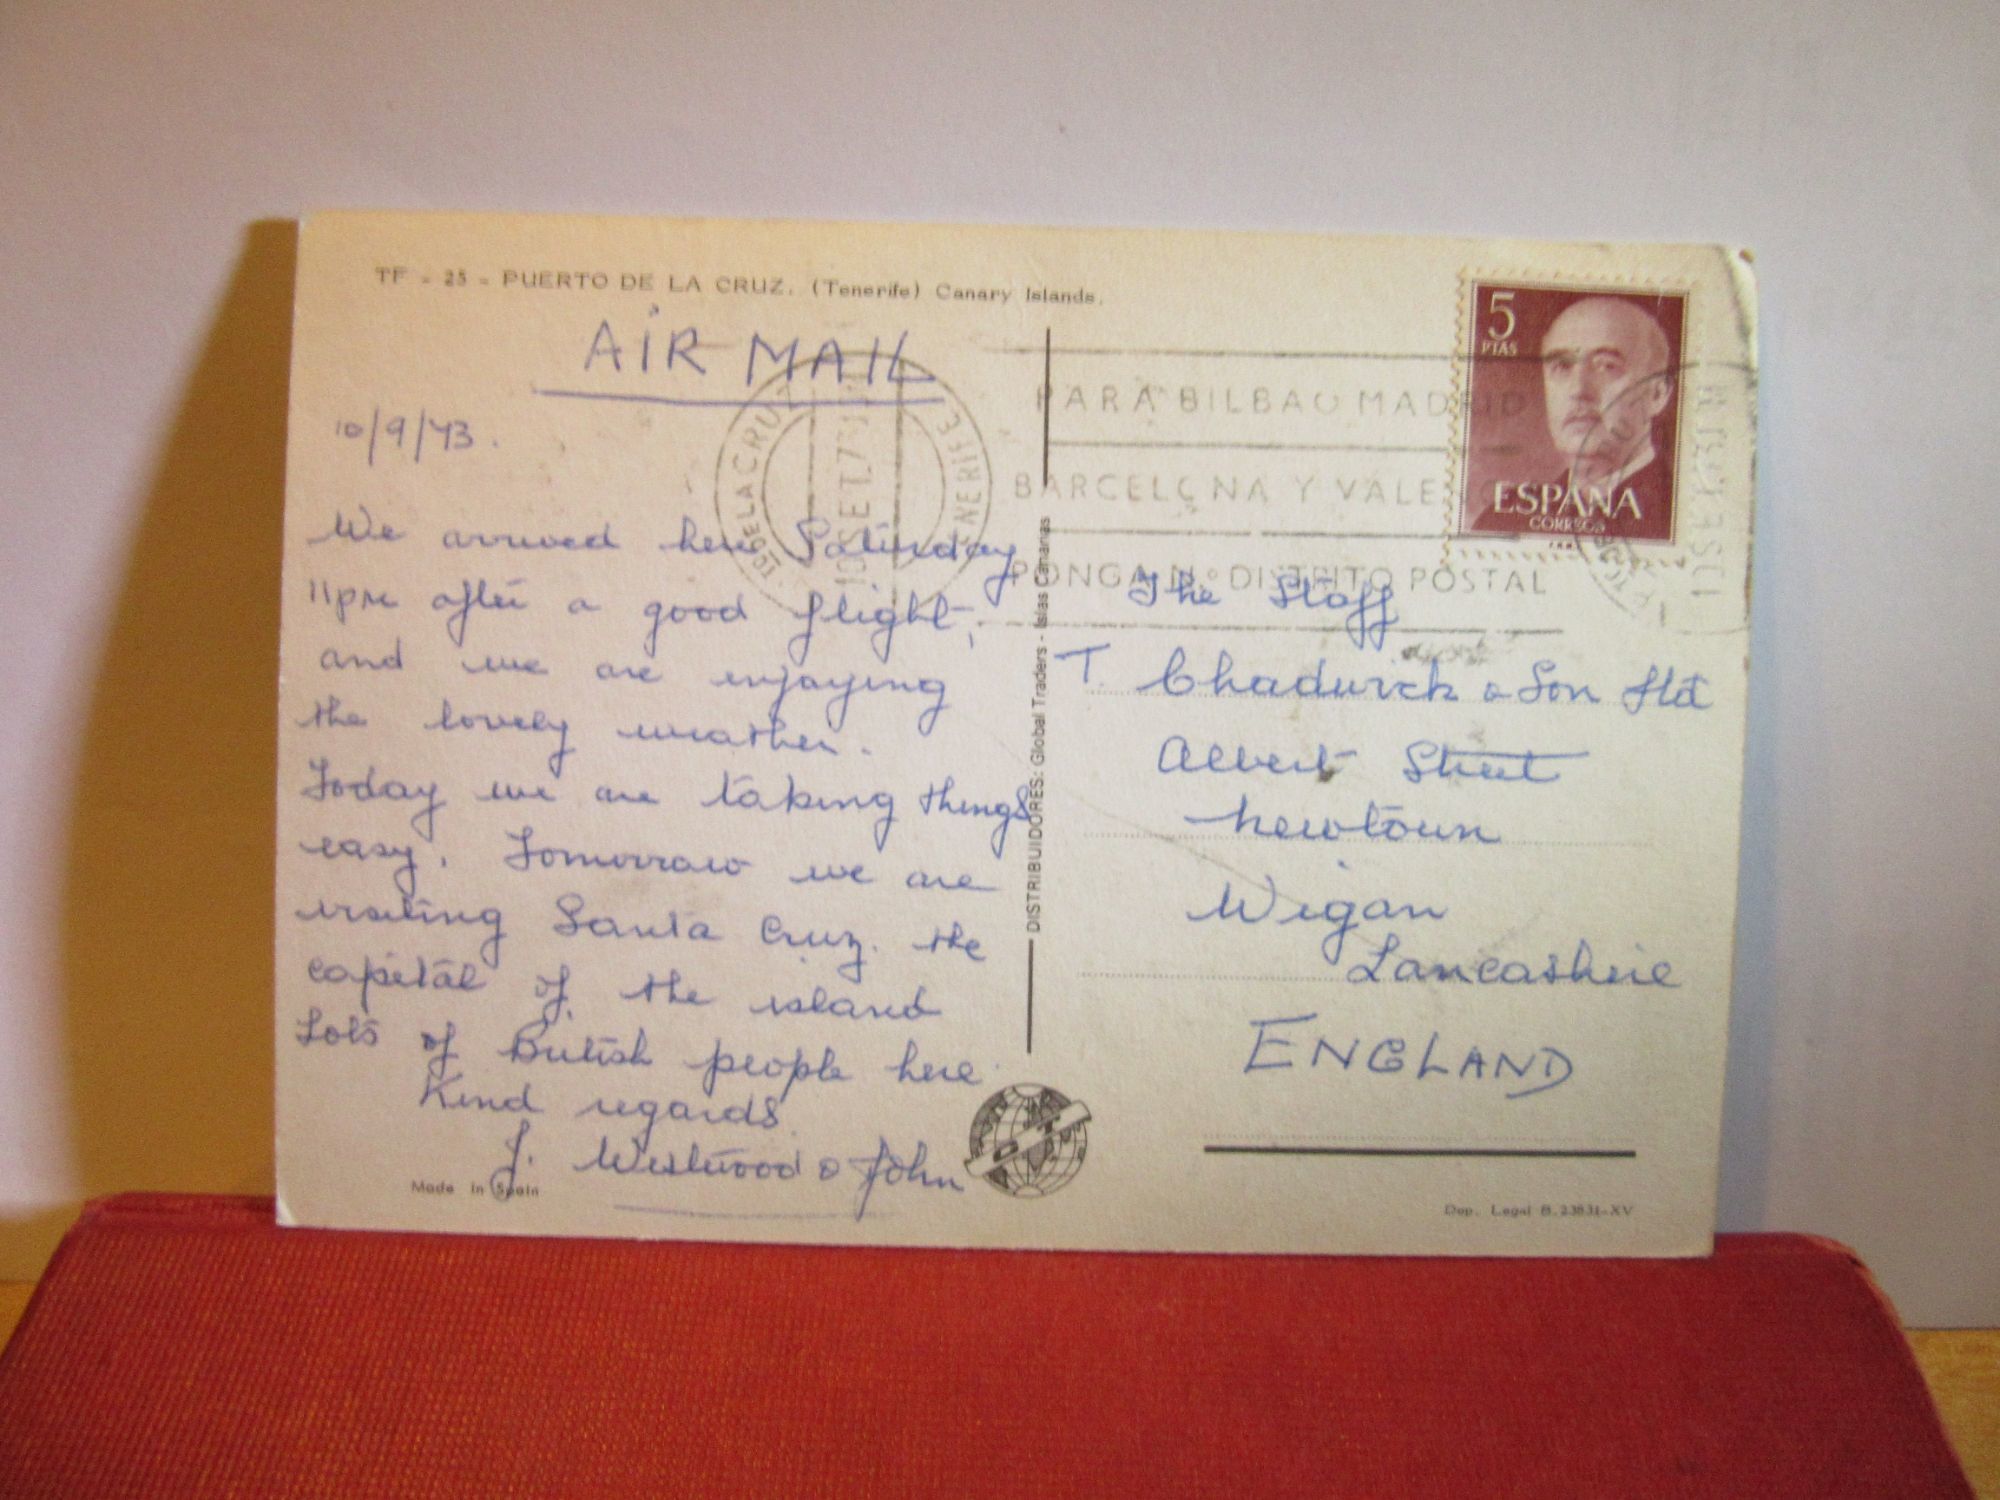 TF - 25 - PUERTO DE LA CRUZ. (Tenerife) Canary Islands.
AIR MAIL
10/9/73.
We arrived here Saturday
11pm after a good flight,
and we are enjoying
the lovely weather.
Today we are taking things
easy. Tomorrow we are
visiting Santa Cruz. the
capital of the island
Lots of British people here
Kind regards
J. Westwood & John
Made in Spain
DE LA CRUZ
TENERIFE
10 SET. 73
PARA BILBAO MADRID
BARCELONA Y VALE
PONGA N.º DISTRITO POSTAL
5
PTAS
ESPAÑA
CORREOS
DISTRIBUIDORES: Global Traders - Islas Canarias
The Staff
T. Chadwick & Son Ltd
Albert Street
Newtown
Wigan
Lancashire
ENGLAND
Dep. Legal B. 23831-XV